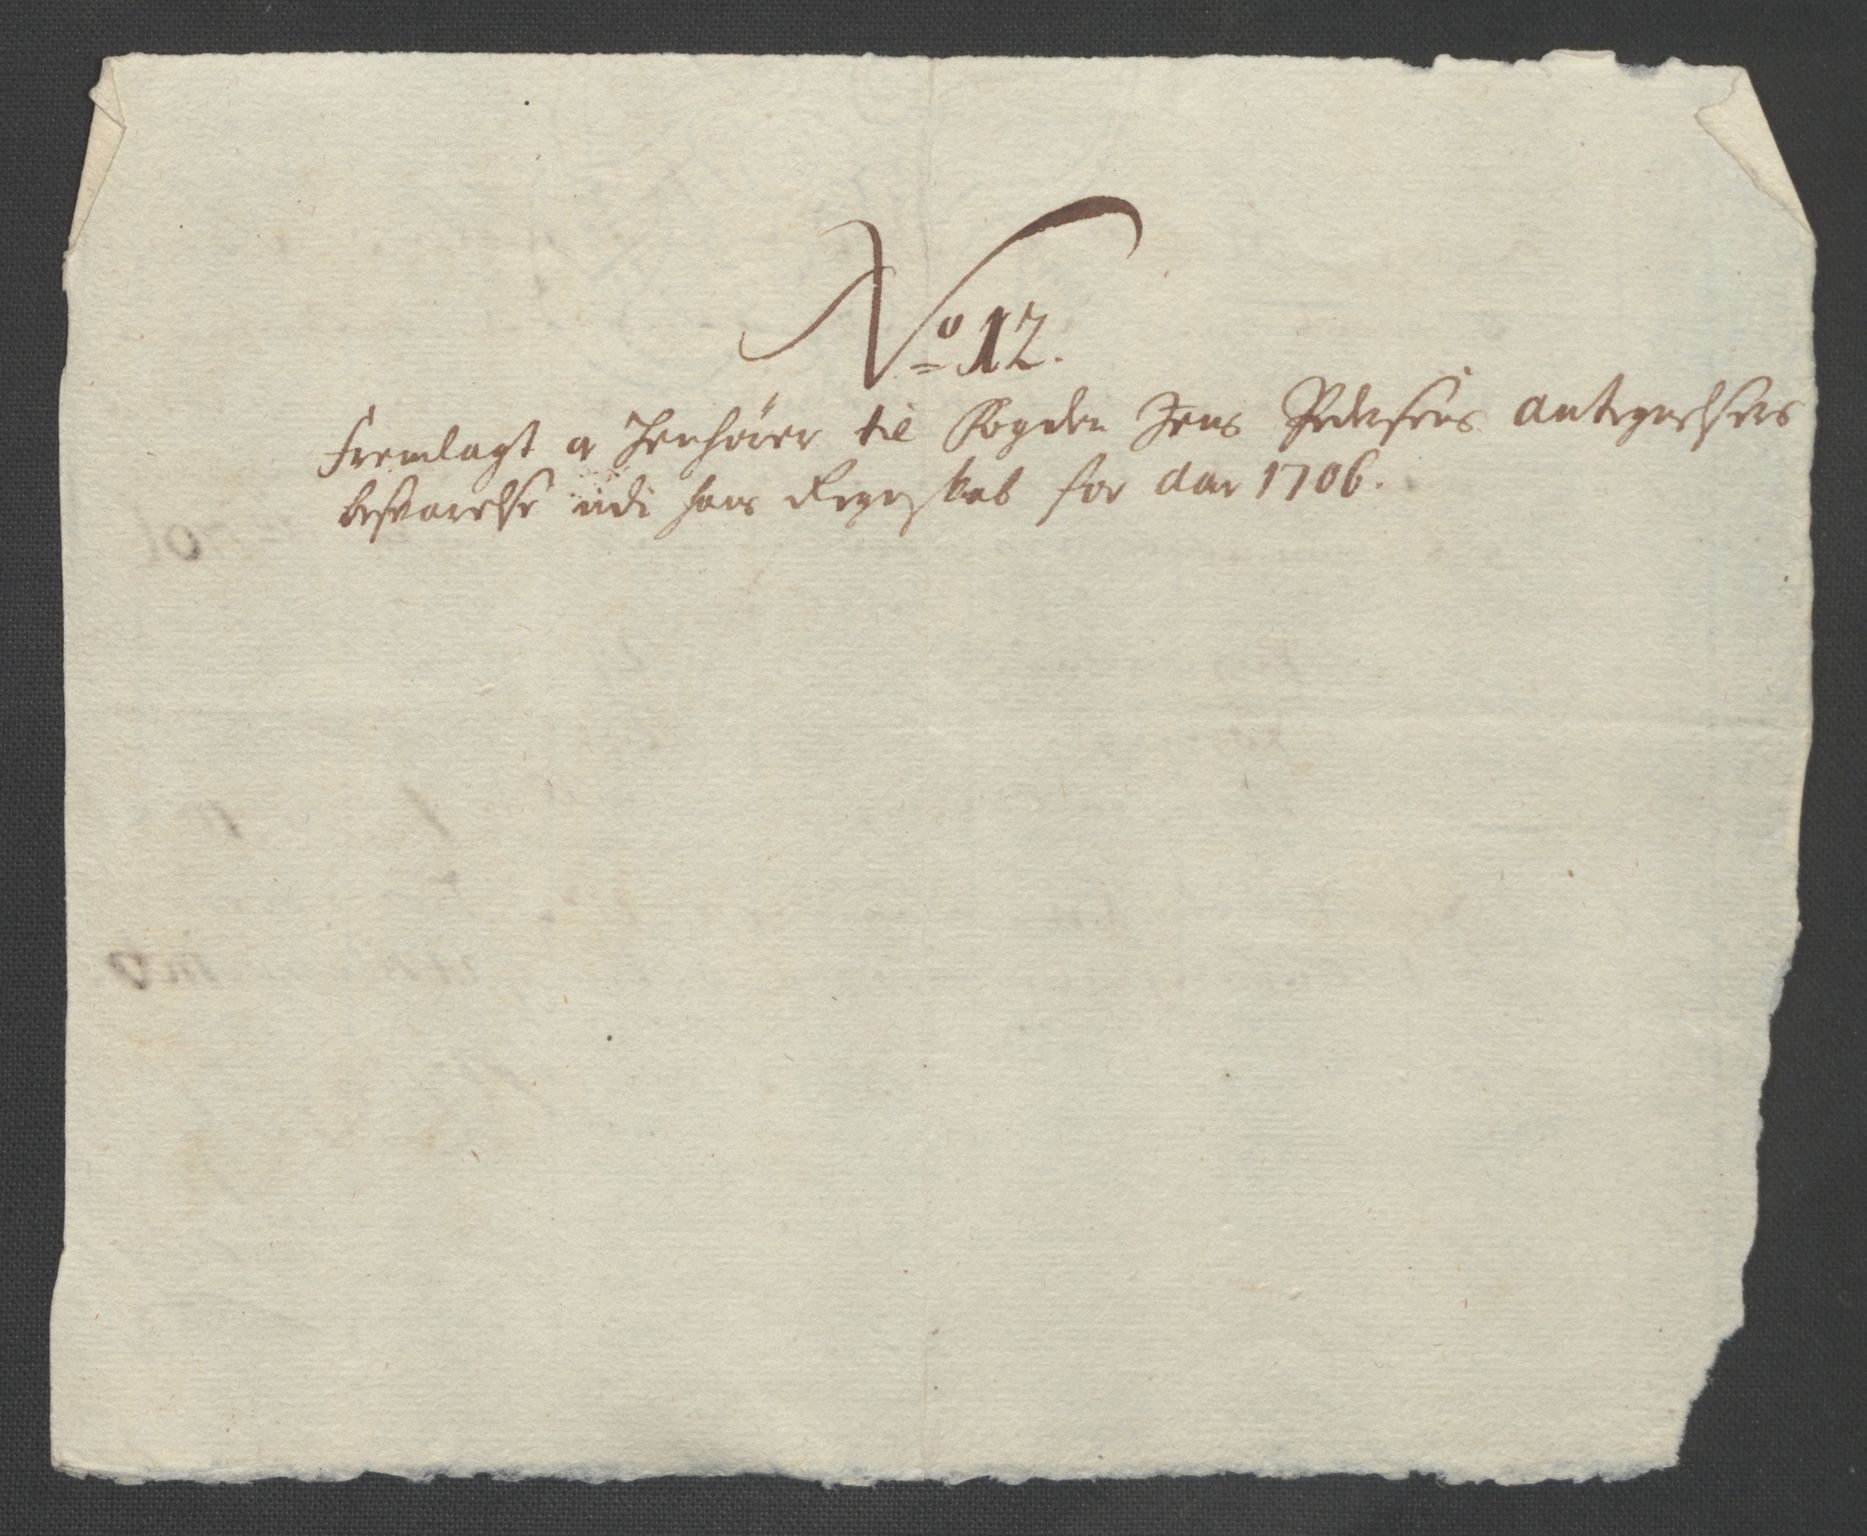 No 12.
Fremlagt og henhører til Fogden Jens Pedersens antegnelsers
besvarelse udi hans Regenskab for aar 1706.